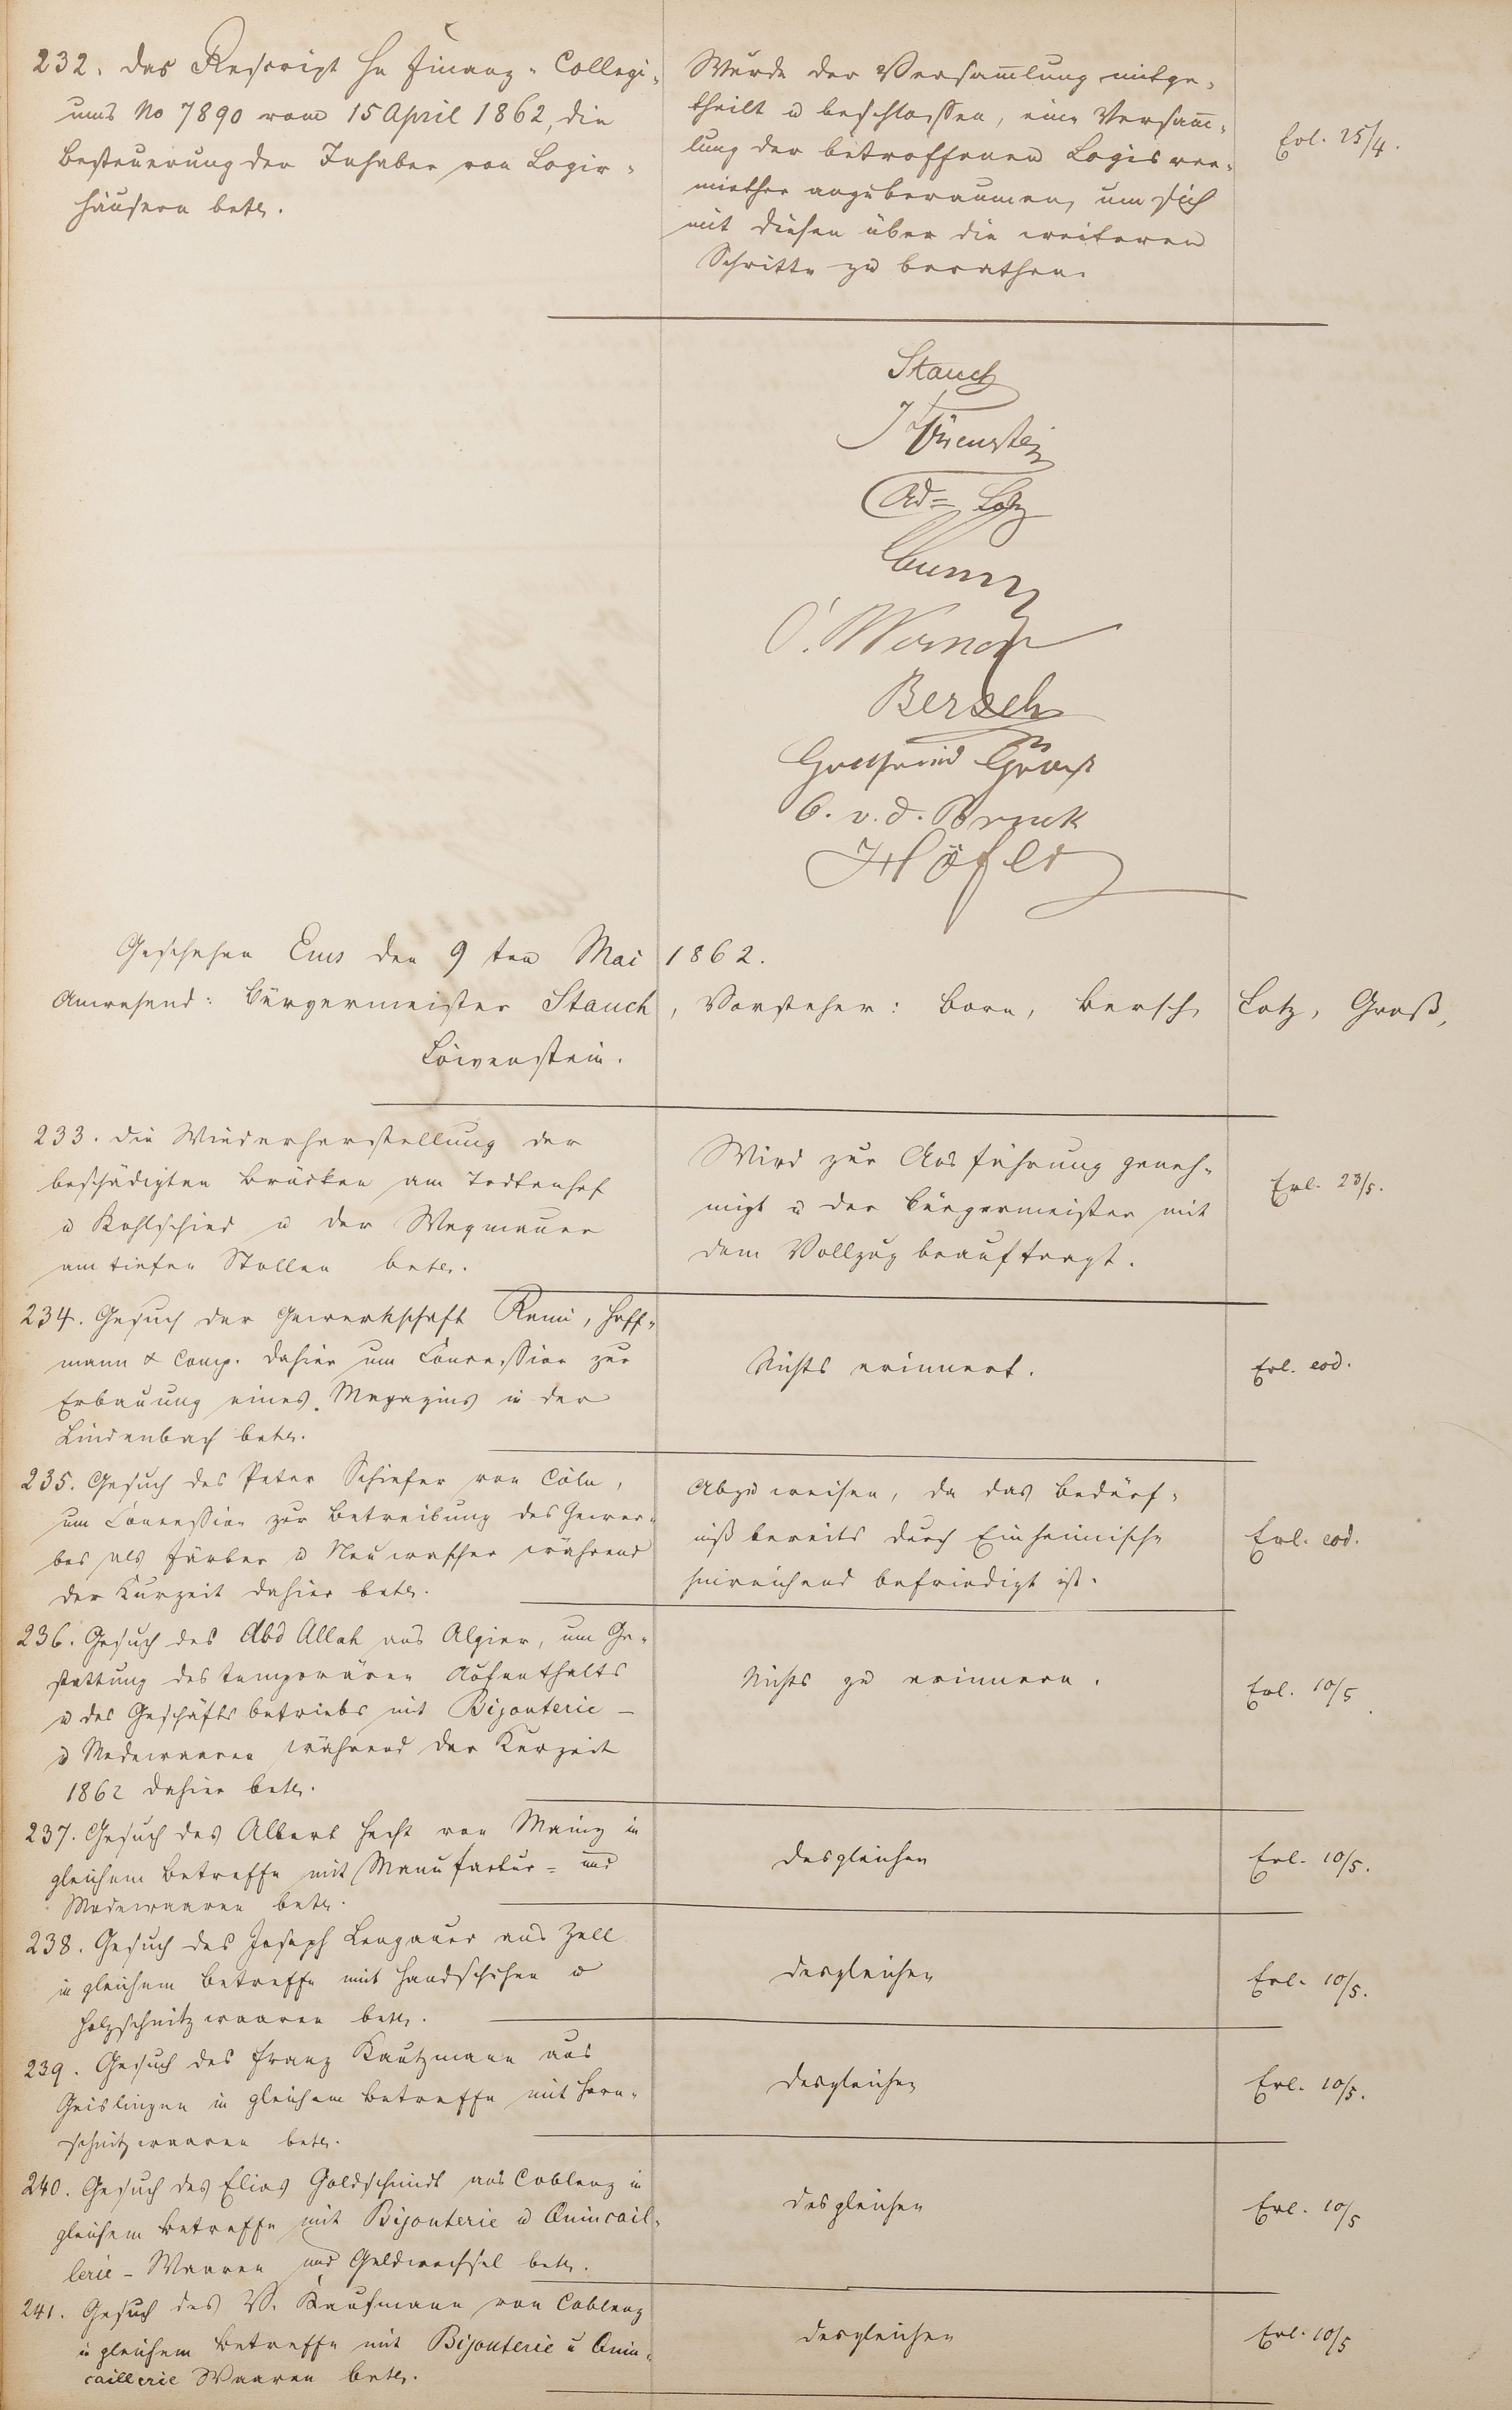 232. Das Rescript Hz Finanz-Collegi-
ums No 7890 vom 15 April 1862, die
Besteuerung der Inhaber von Logir-
häusern betr.
Wurde der Versammlung mitge-
theilt u beschlossen, eine Versamm-
lung der betroffenen Logisver-
miether anzuberaumen, um sich
mit diesen über die weiteren
Schritte zu berathen.
Erl. 25/4.
Stauch
Ad= Lotz
C. Werner
Bersch
Gottfried Groß
C. v. d. Brink
Höfer
Geschehen Ems den 9ten Mai 1862.
Anwesend: Bürgermeister Stauch, Vorsteher: Born, Bersch, Lotz, Groß,
Löwenstein.
233. Die Wiederherstellung der
beschädigten Brücken am Todtenhof
u Kohlschied u der Wegmauer
am tiefen Stollen betr.
Wird zur Ausführung geneh-
migt u der Bürgermeister mit
dem Vollzug beauftragt.
Erl. 23/5.
234. Gesuch der Gewerkschaft Remi, Hoff-
mann & Comp. dahier um Concession zur
Erbauung eines Magazins in der
Lindenbach betr.
Nichts erinnert.
Erl. eod.
235. Gesuch des Peter Schiefer von Cöln,
um Concession zur Betreibung des Gewer-
bes als Färber u Neuwascher während
der Kurzeit dahier betr.
Abzuweisen, da das Bedürf-
niß bereits durch Einheimische
hinreichend befriedigt ist.
Erl. eod.
236. Gesuch des Abd Allah aus Algier, um Ge-
stattung des temporären Aufenthalts
u des Geschäftsbetriebs mit Bijouterie-
u Modewaaren während der Kurzeit
1862 dahier betr.
Nichts zu erinnern.
Erl. 10/5.
237. Gesuch des Albert Hecht von Mainz in
gleichem Betreffe mit Manufactur- und
Modewaaren betr.
desgleichen
Erl. 10/5.
238. Gesuch des Joseph Lengauer aus Zell
in gleichem Betreffe mit Handschuhen u
Holzschnitzwaaren betr.
desgleichen
Erl. 10/5.
239. Gesuch des Franz Kautzmann aus
Geislingen in gleichem Betreffe mit Horn-
schnitzwaaren betr.
desgleichen
Erl. 10/5.
240. Gesuch des Elias Goldschmidt aus Coblenz in
gleichem Betreffe mit Bijouterie u Quincail-
lerie-Waaren und Geldwechsel betr.
desgleichen
Erl. 10/5
241. Gesuch des W. Kaufmann von Coblenz
in gleichem Betreffe mit Bijouterie u Quin-
caillerie Waaren betr.
desgleichen
Erl. 10/5